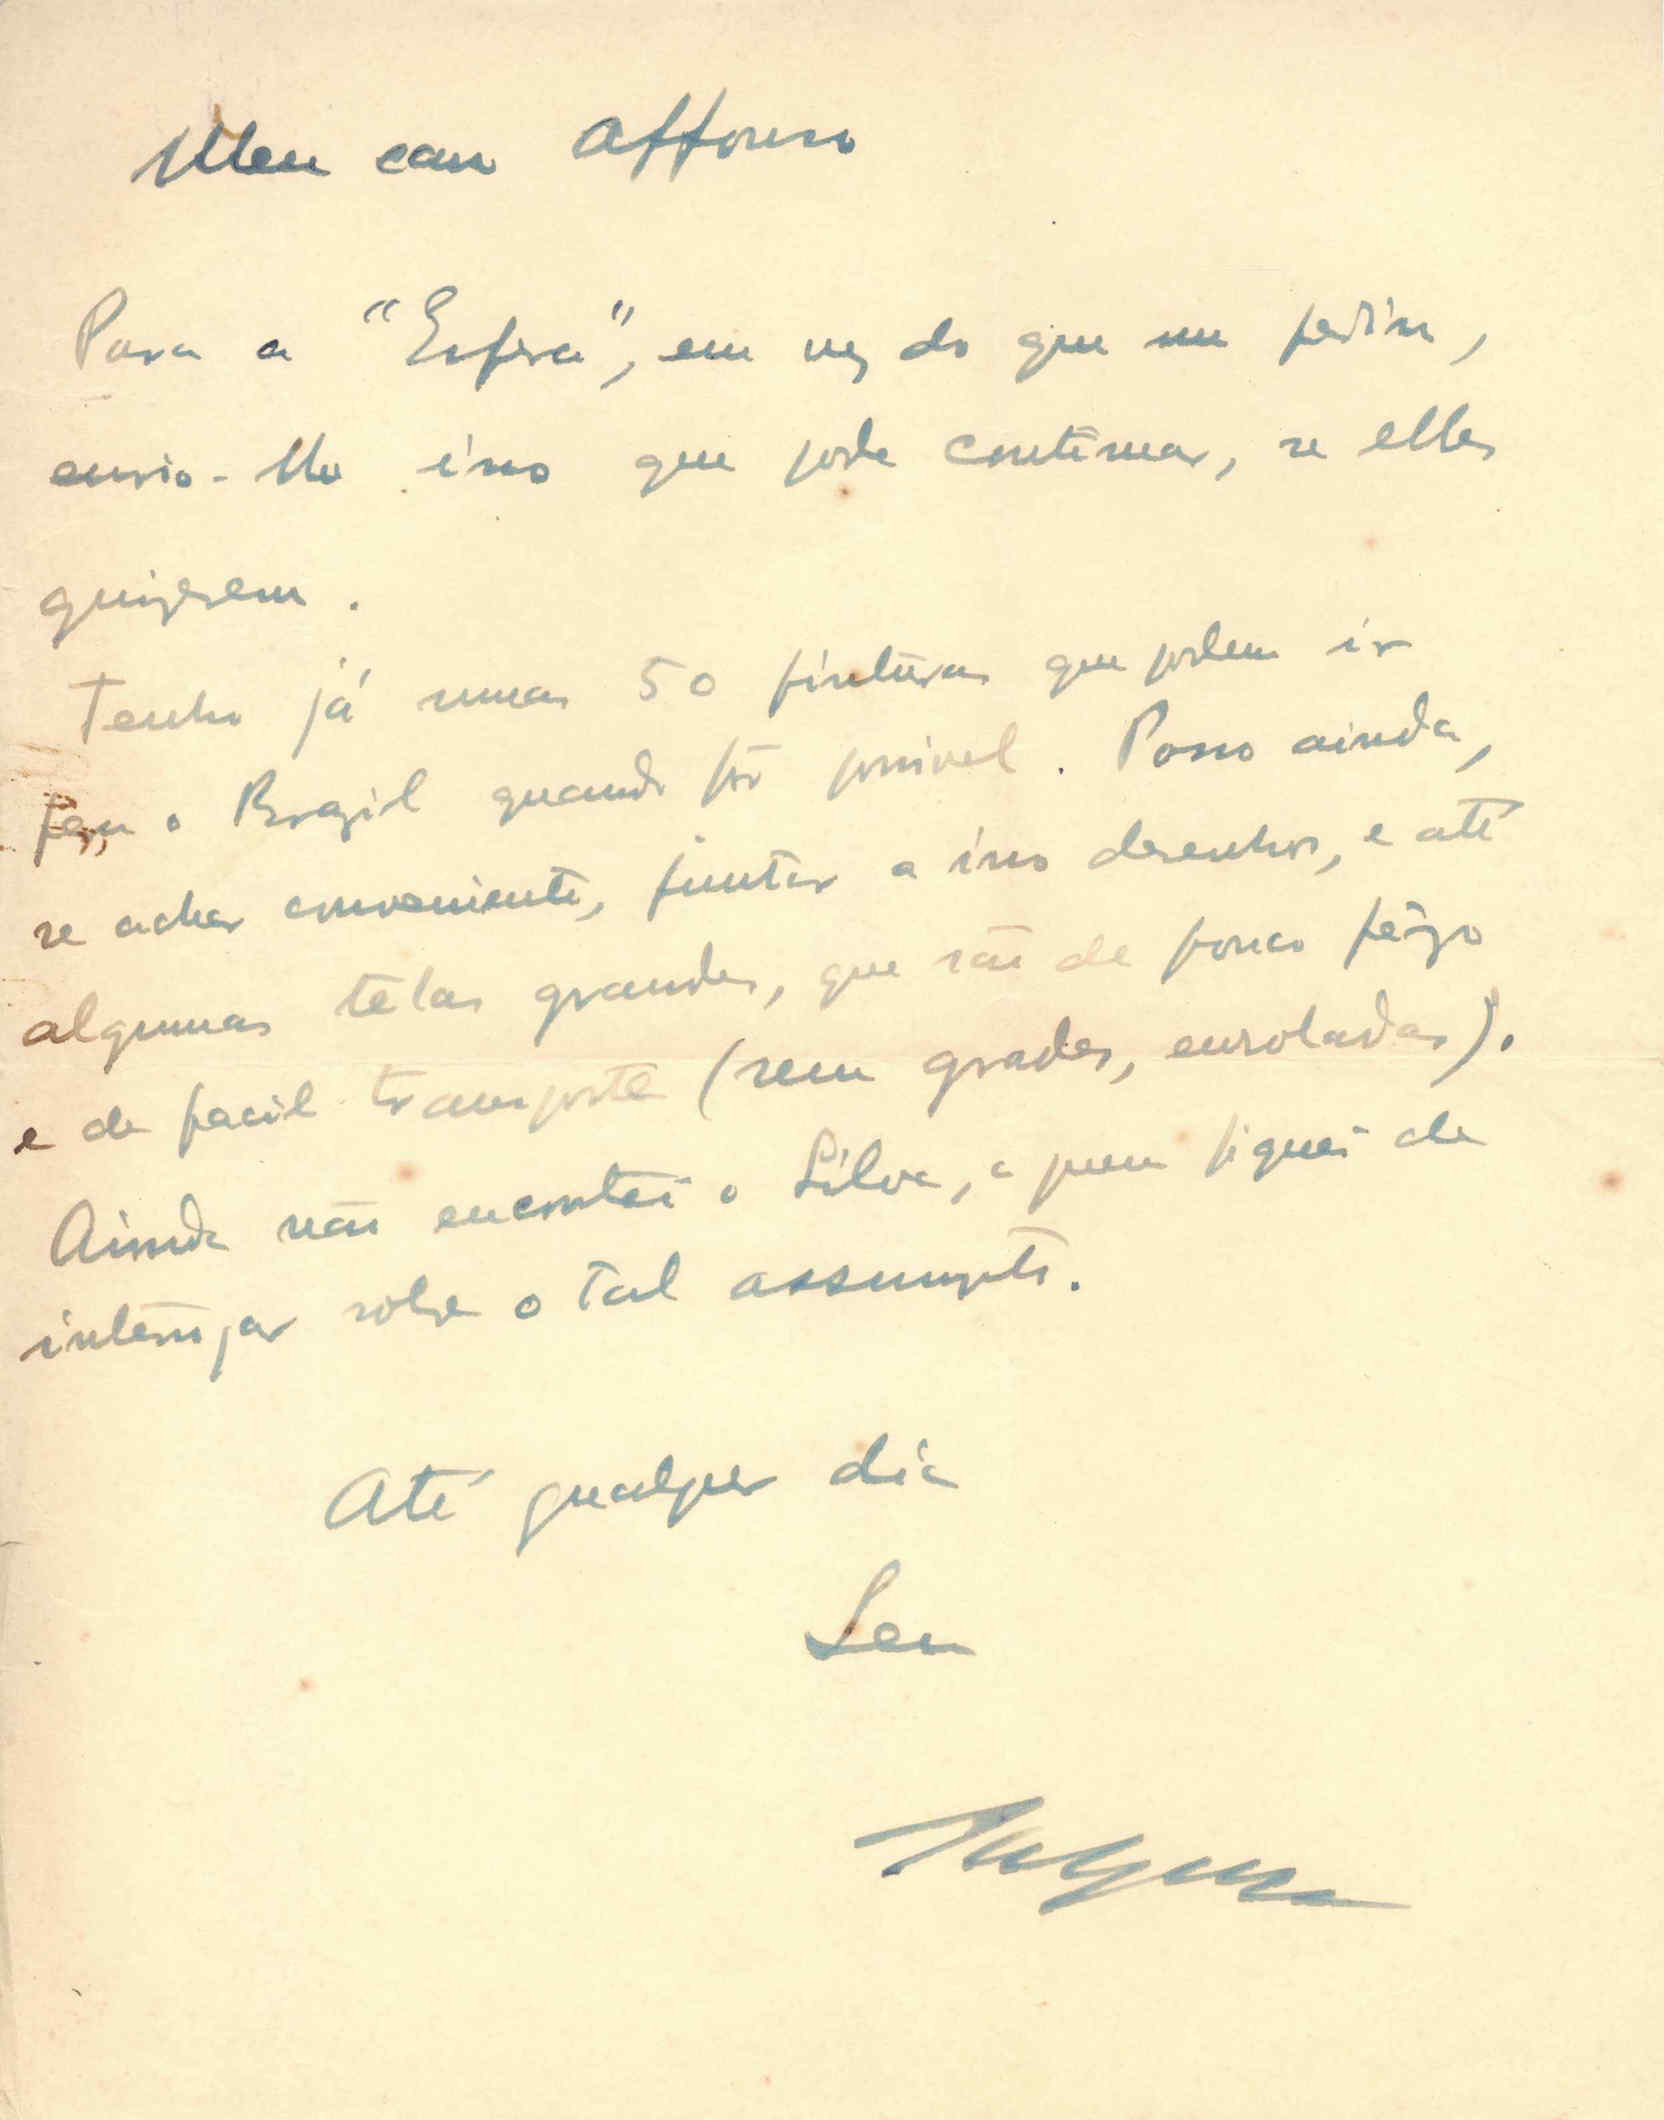 Meu caro Affonso
Para a "Esfera", em vez do que me pediu,
envio-lhe isso que pode continuar, se elles
quizerem.
Tenho já umas 50 pinturas que podem ir
para o Brazil quando fôr possivel. Posso ainda,
se achar conveniente, juntar a isso desenhos, e até
algumas telas grandes, que são de pouco pêzo
e de facil transporte (sem grades, enroladas).
Ainda não encontrei o Silva, a quem fiquei de
interrogar sobre o tal assumpto.
Até qualquer dia
Seu